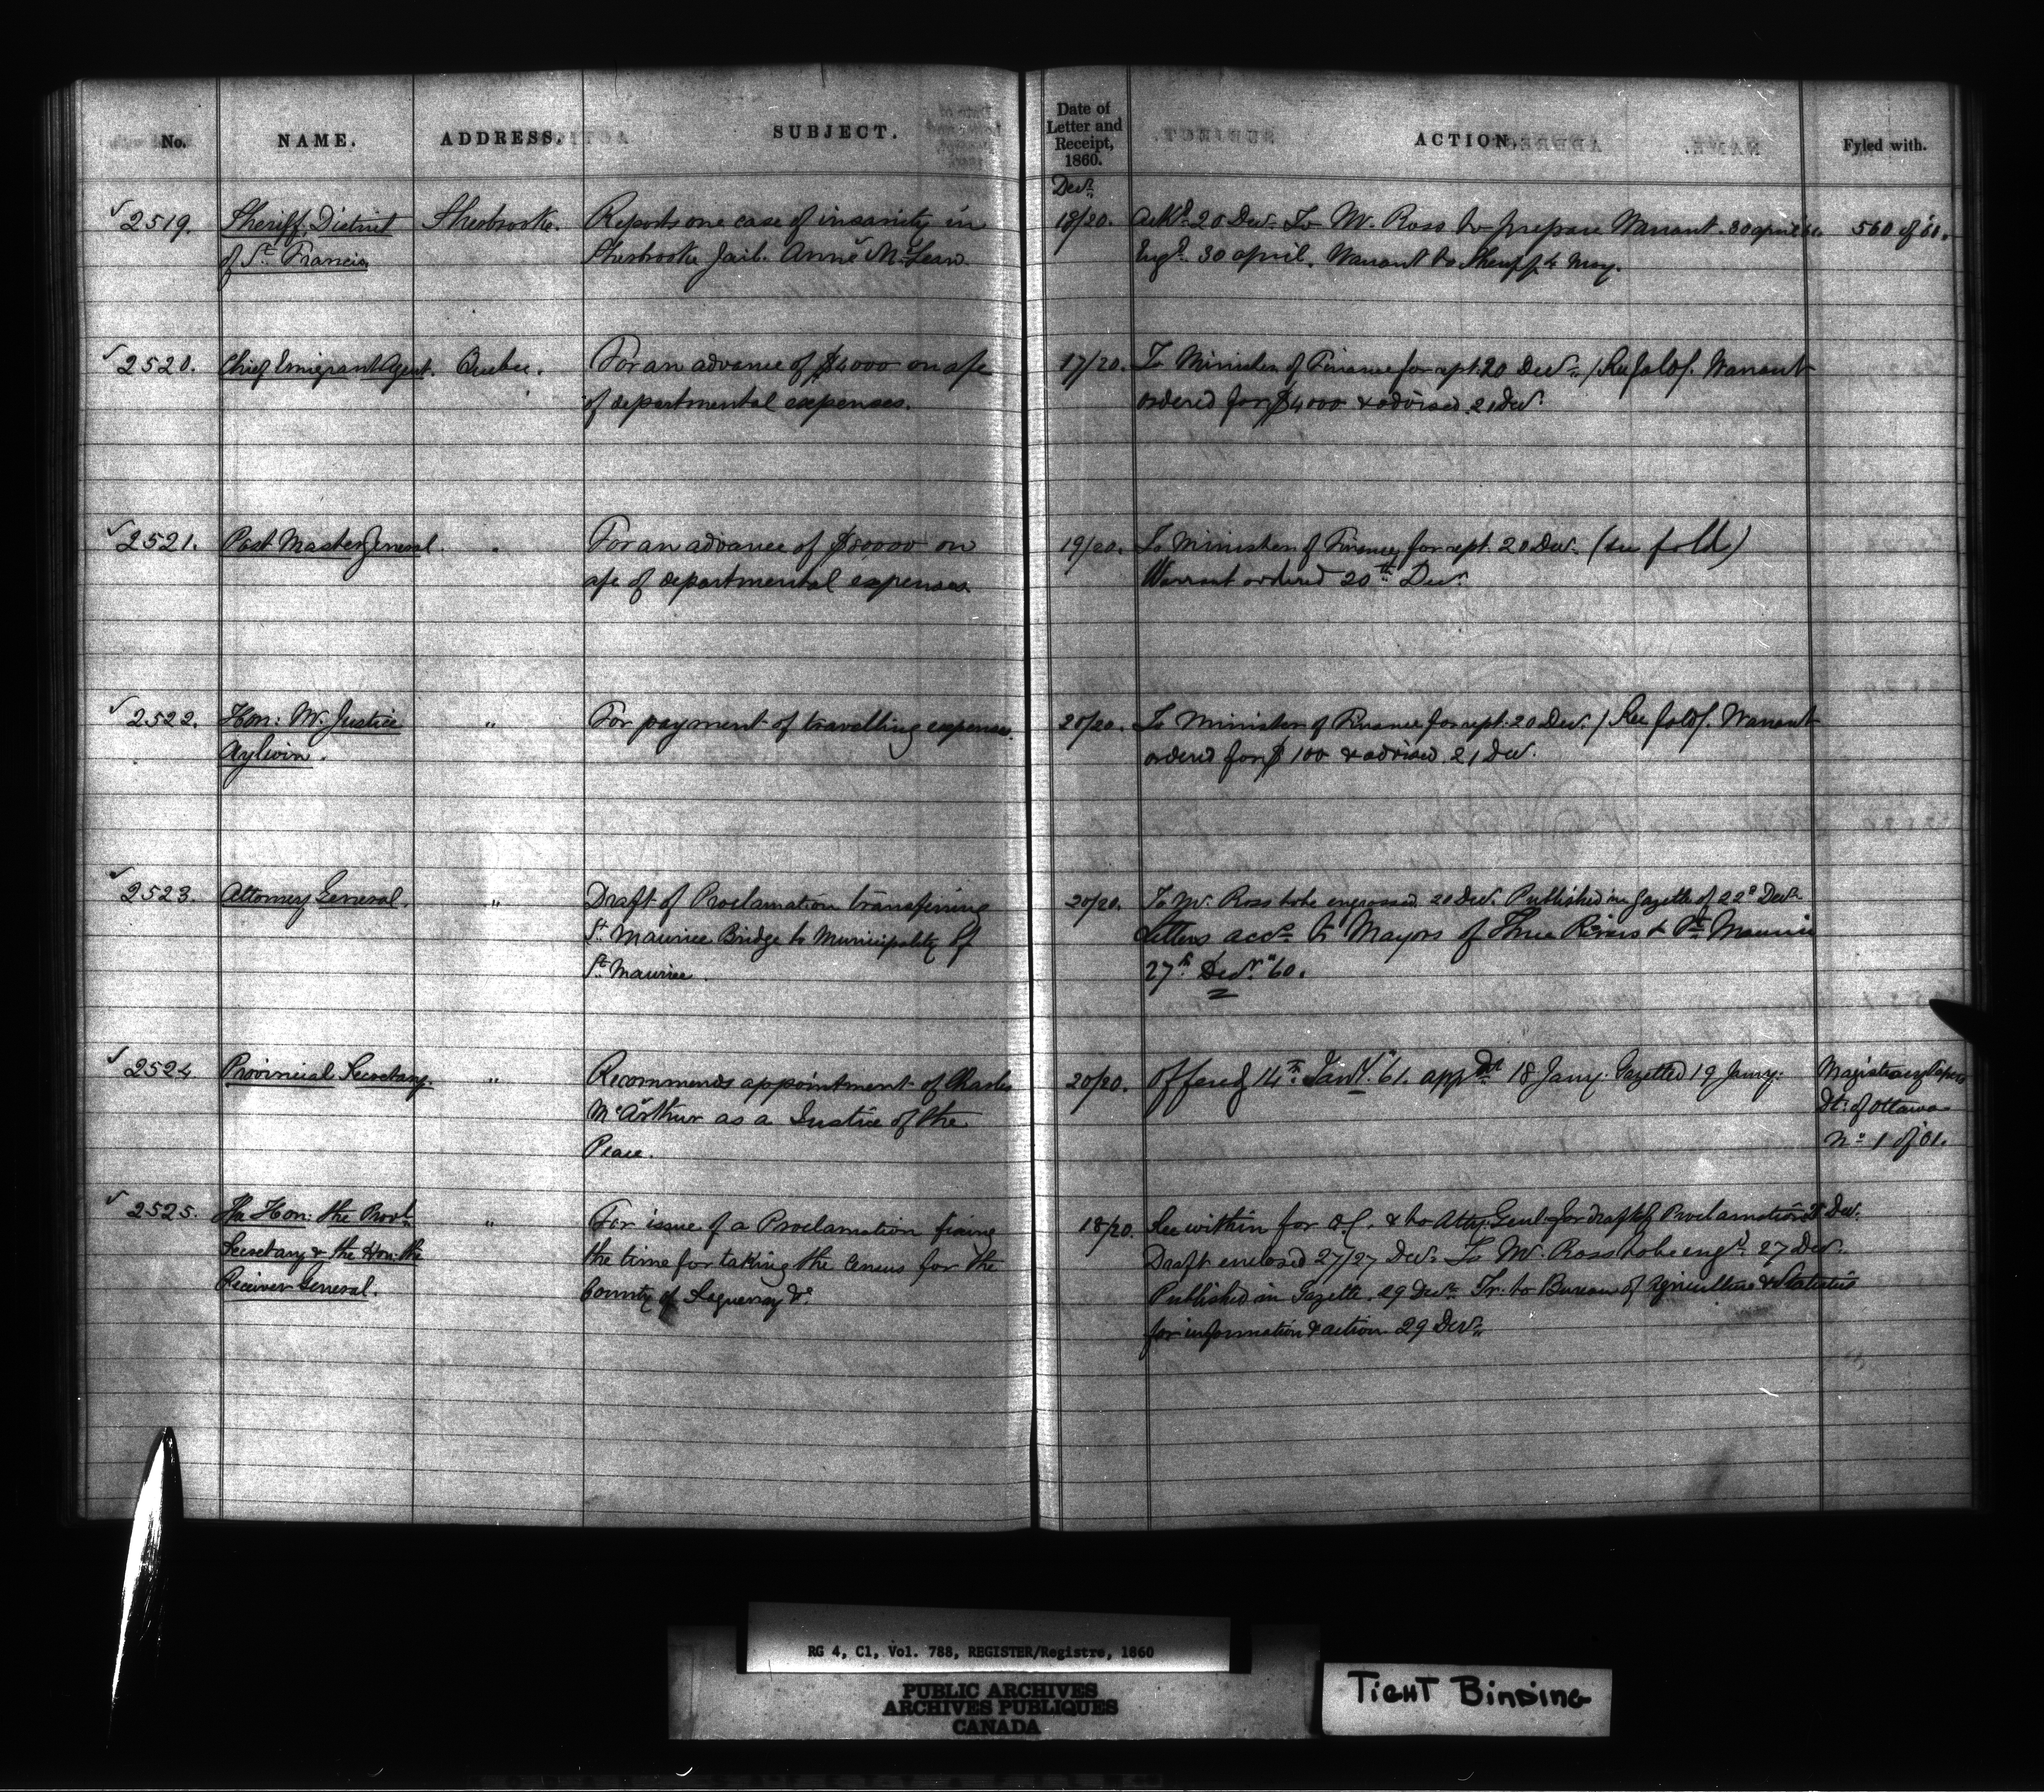 No. NAME. ADDRESS. SUBJECT. Date of Letter and Receipt, 1860. ACTION. Fyled with.
Decr.
2519. Sheriff District Sherbrooke. Reports one case of insanity in 18/20. Ackd. 20 Decr. To Mr. Ross to prepare Warrant. 30 april 560 of 60.
of St. Francis Sherbrooke Jail. Anne McLean Engd. 30 april. Warrant to Sheriff 4 May.
2520. Chief Emigrant Agent. Quebec. For an advance of $4000 on a/c 17/20. To Minister of Finance for rept. 20 Decr. (See fold). Warrant
of departmental expenses. ordered for $4000 & advised 21 Decr.
2521. Post Master General. " For an advance of $80000 on 19/20. To Minister of Finance for rept. 20 Decr. (see fold)
a/c of departmental expenses Warrant ordered 20th Decr.
2522. Hon: Mr. Justice " For payment of travelling expenses. 20/20. To Minister of Finance for rept. 20 Decr. (See fold). Warrant
Aylwin. ordered for $100 & advised 21 Decr.
2523. Attorney General. " Draft of Proclamation transferring 20/20. To Mr. Ross to be engrossed 20 Decr. Published in Gazette of 22d Decr.
St. Maurice Bridge to Municipality of Letters accy. to Mayors of Three Rivers & St. Maurice
St. Maurice. 27th. Decr. '60.
2524 Provincial Secretary. " Recommends appointment of Charles 20/20. Offered 14th. Jany. '61. appd. 18 Jany. Gazetted 19 Jany. Magistracy Papers
McArthur as a Justice of the Dt. of Ottawa
Peace. No. 1 of 61.
2525. The Hon: the Provl. " For issue of a Proclamation fixing 18/20. See within for O.C. & to Atty. Genl. for draft of Proclamation Decr.
Secretary & the Hon: the the time for taking the Census for the Draft enclosed 27/27 Decr. To Mr. Ross to be engd. 27 Decr.
Receiver General. County of Saguenay &c. Published in Gazette. 29 Decr. Tr. to Bureau of Agriculture & Statistics
for information & action 29 Decr.
RG 4, C1, Vol. 788, REGISTER/Registre, 1860
PUBLIC ARCHIVES
ARCHIVES PUBLIQUES
CANADA
TIGHT BINDING